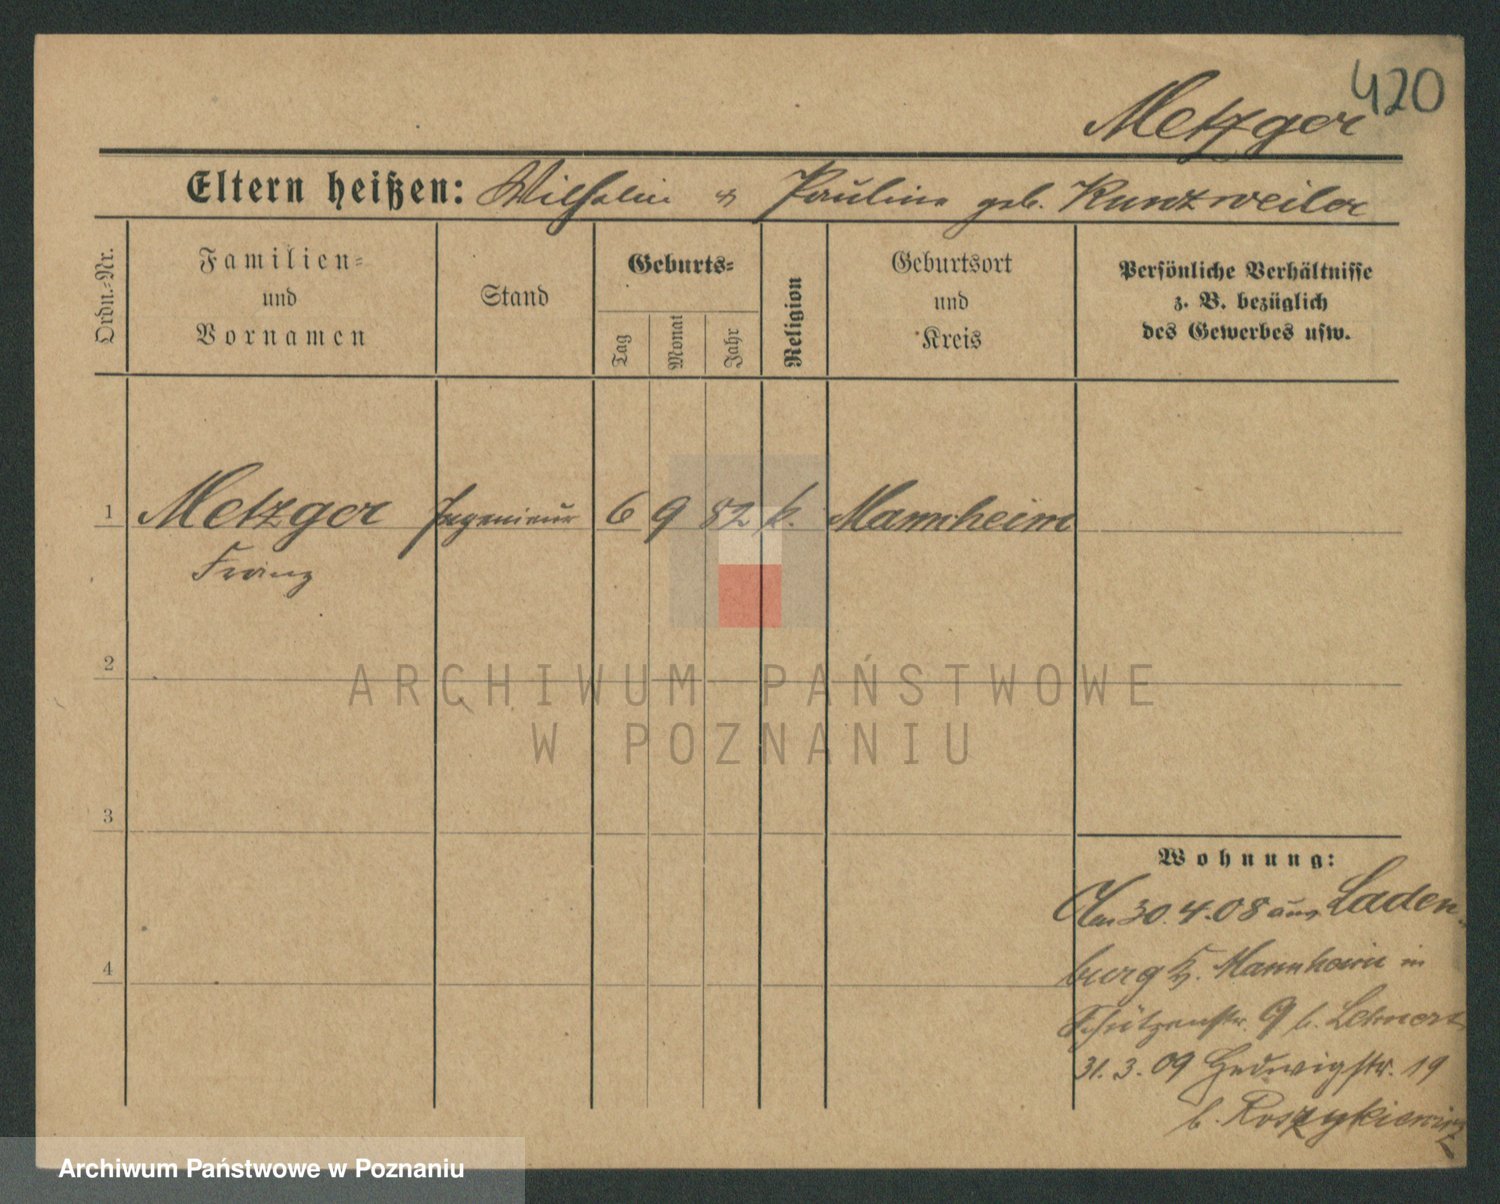 420
Metzger
Eltern heißen: Wilhelm & Pauline geb. Kunzweiler
Ordn.=Nr.
Familien=
und
Vornamen
Stand
Geburts=
Tag
Monat
Jahr
Religion
Geburtsort
und
Kreis
Persönliche Verhältnisse
z. B. bezüglich
des Gewerbes usw.
1 Metzger Ingenieur 6 9 82 k. Mannheim
Franz
2
3
4
Wohnung:
30.4.08 aus Laden-
burg Kr. Mannheim in
Schützenstr. 9 b. Lehnert
31.3.09 Hedwigstr. 19
b. Roszykiewicz
ARCHIWUM PAŃSTWOWE
W POZNANIU
Archiwum Państwowe w Poznaniu